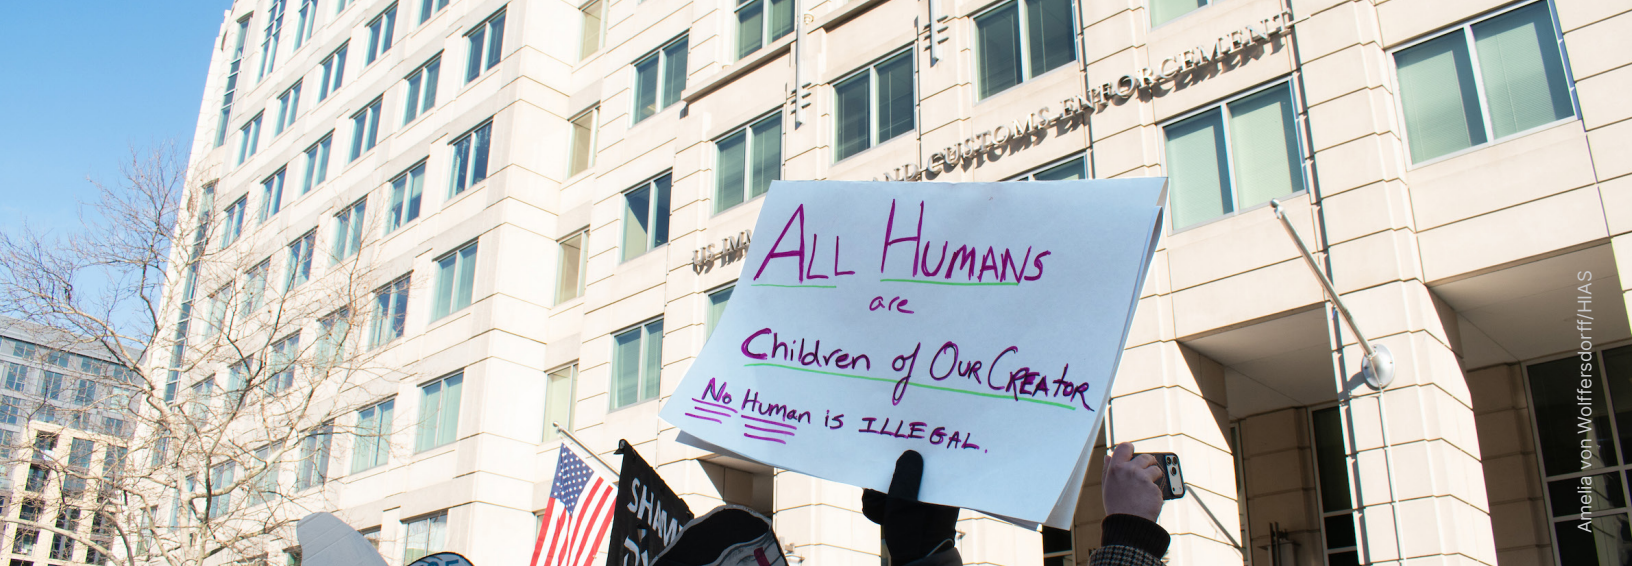 US IMM
AND CUSTOMS ENFORCEMENT
ALL HUMANS
are
Children of OUR CREATOR
No Human is ILLEGAL.
Amelia von Wolffersdorff/HIAS